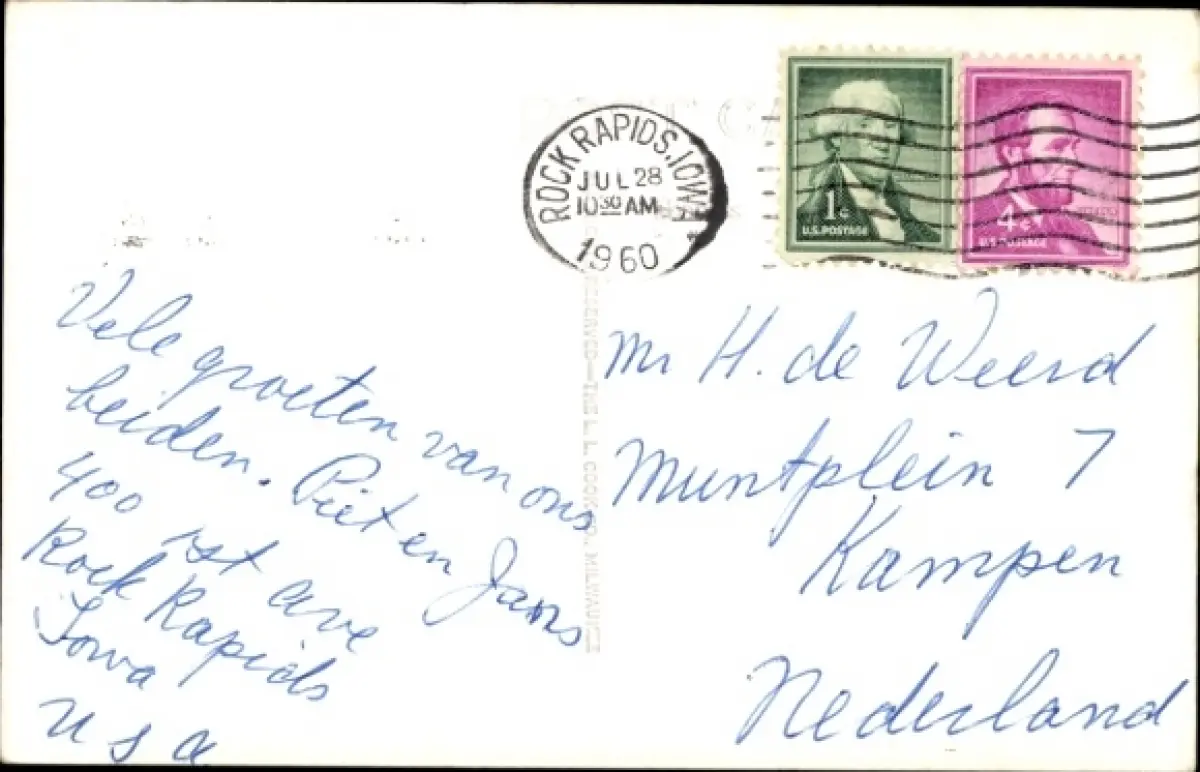 ROCK RAPIDS, IOWA
JUL 28
10 30 AM
1960
1c
U.S. POSTAGE
4c
U.S. POSTAGE
Vele groeten van ons
beiden. Piet en Jans
400 1st ave
Rock Rapids
Iowa
U S A
RESERVED—THE L. L. COOK CO., MILWAUKEE
Mr H. de Weerd
Muntplein 7
Kampen
Nederland